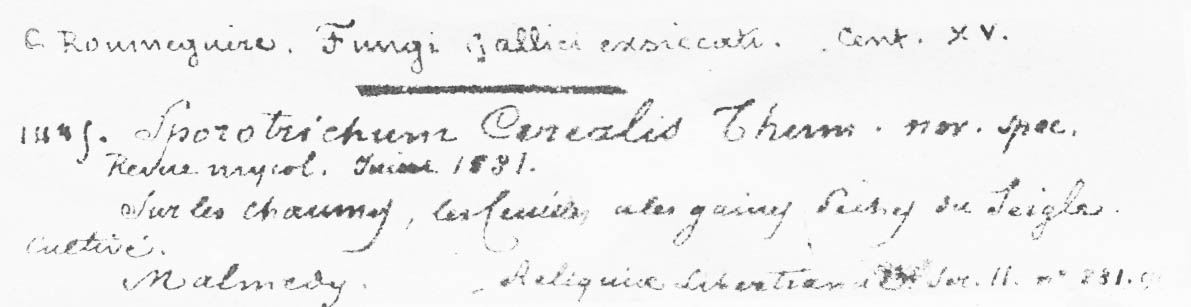 C. Roumeguère. Fungi Gallici exsiccati. Cent. XV.
1445. Sporotrichum Cerealis Thüm. nov. spec.
Revue mycol. 1881.
Sur les Chaumes, les feuilles, et les gaines sèches du Seigle
Cultivé.
Malmedy. Reliquiæ Libertianæ Ser. II. nº 231.